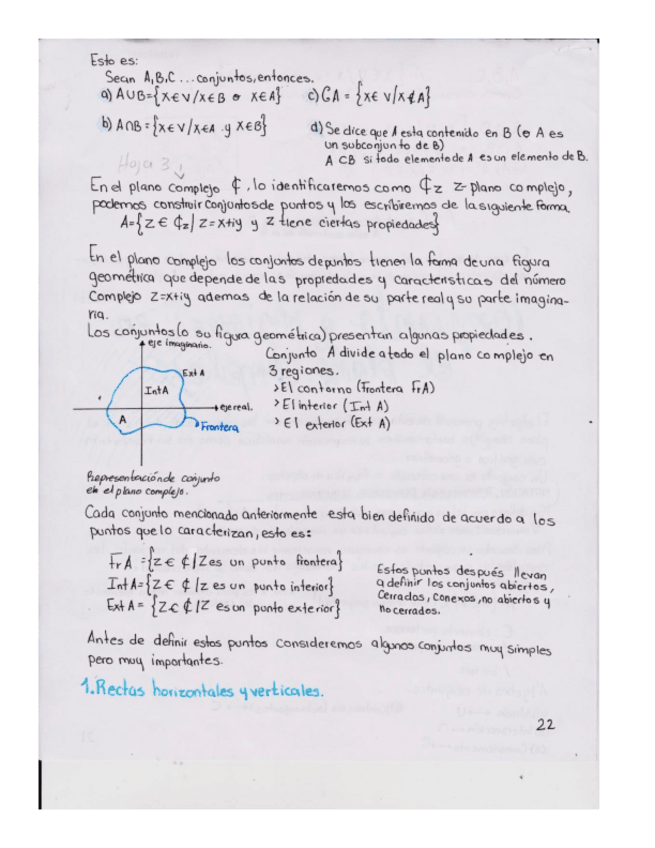 Esto es:
Sean A,B,C ... conjuntos, entonces.
a) A∪B={x∈V/x∈B o x∈A}   c) ∁A = {x∈ V/x∉A}
b) A∩B = {x∈V/x∈A y x∈B}   d) Se dice que A esta contenido en B (o A es
un subconjunto de B)
A ⊂B si todo elemento de A es un elemento de B.
Hoja 3 ↓
En el plano complejo ₵, lo identificaremos como ₵z z-plano complejo,
podemos construir conjuntos de puntos y los escribiremos de la siguiente forma.
A={z ∈ ₵z/ z=x+iy y z tiene ciertas propiedades}
En el plano complejo los conjuntos de puntos tienen la forma de una figura
geométrica que depende de las propiedades y caracteristicas del número
Complejo z=x+iy ademas de la relación de su parte real y su parte imagina-
ria.
Los conjuntos (o su figura geométrica) presentan algunas propiedades.
eje imaginario.
Ext A
Int A
A
eje real.
Frontera
Conjunto A divide a todo el plano complejo en
3 regiones.
> El contorno (Frontera FrA)
> El interior (Int A)
> El exterior (Ext A)
Representación de conjunto
en el plano complejo.
Cada conjunto mencionado anteriormente esta bien definido de acuerdo a los
puntos que lo caracterizan, esto es:
Fr A = {z ∈ ₵/z es un punto frontera}
Int A={z ∈ ₵/z es un punto interior}
Ext A = {z ∈ ₵/z es un punto exterior}
Estos puntos después llevan
a definir los conjuntos abiertos,
Cerrados, Conexos, no abiertos y
no cerrados.
Antes de definir estos puntos consideremos algunos conjuntos muy simples
pero muy importantes.
1. Rectas horizontales y verticales.
22